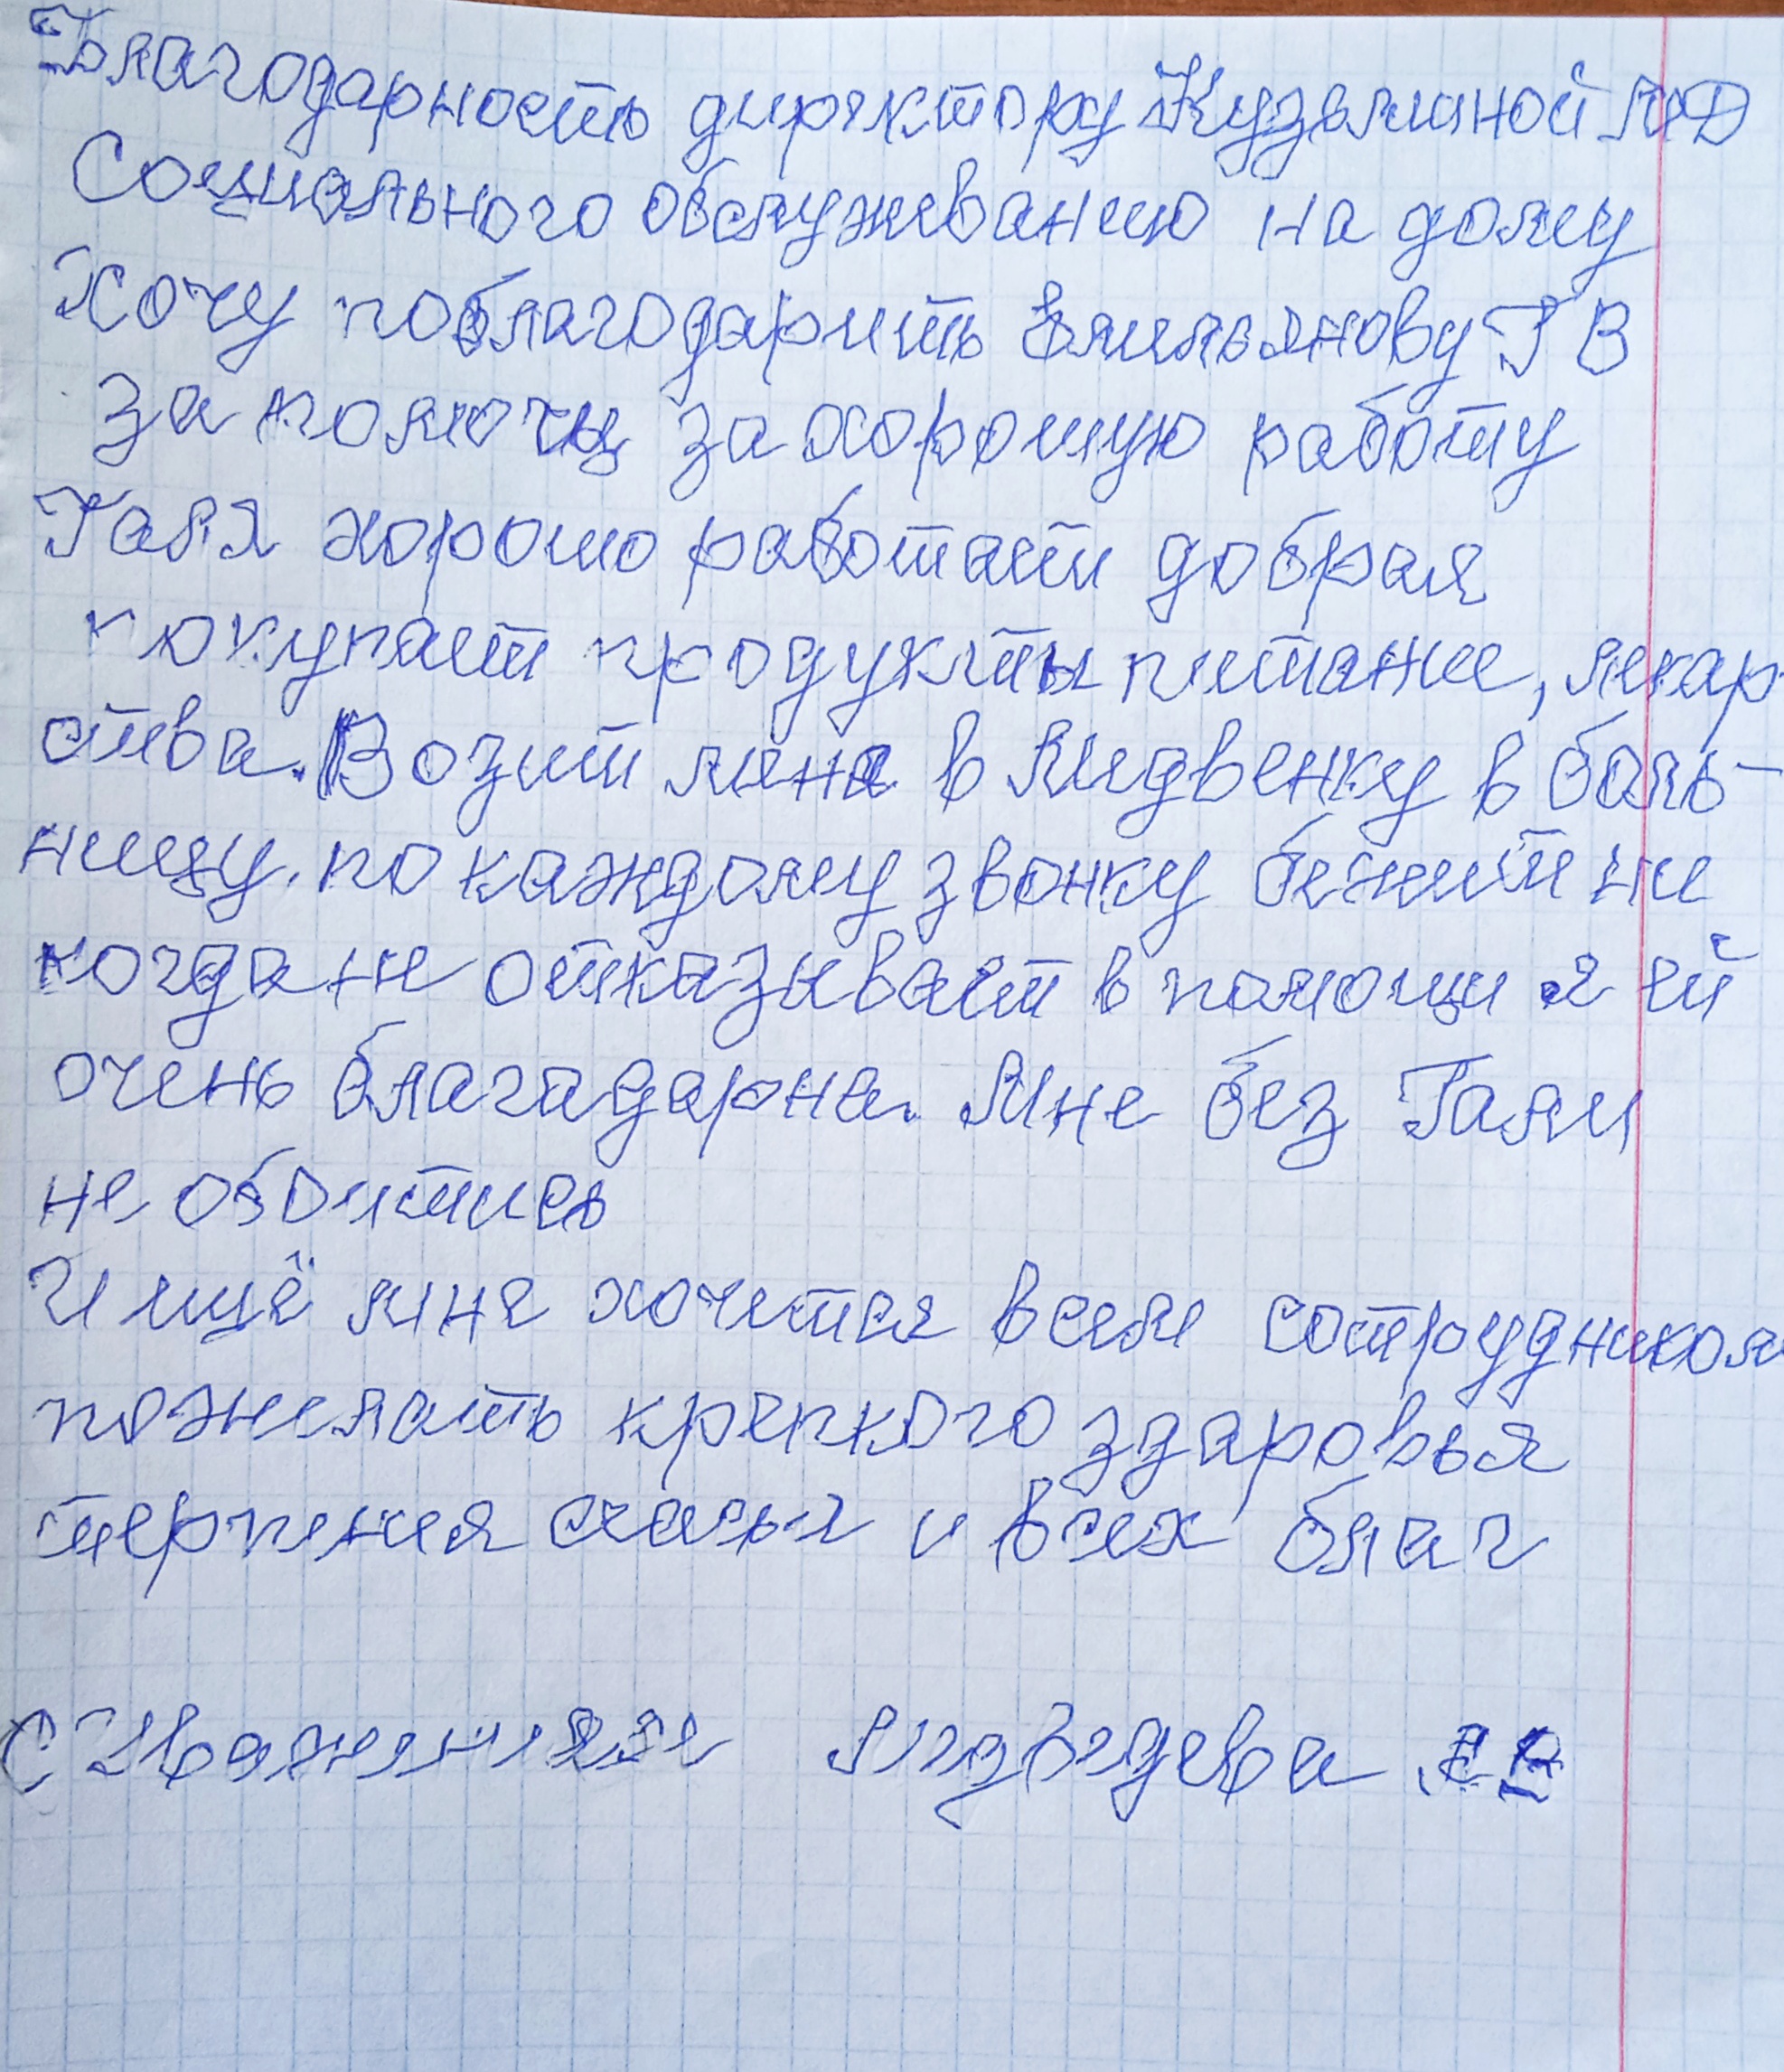 Благодарность директору Кузьминой МД
Социального обслуживанию на дому
Хочу поблагодарить Емильянову Г В
за помочь за хорошую работу
Галя хорошо работает добрая
покупает продукты питание, лекар-
ства. Возит меня в Мидвенку в боль-
ницу. по каждому звонку бежит ни
когда не отказывает в помощи я ей
очень благадарна. Мне без Гали
не обоитись
И ищё мне хочится всем сотрудником
пожелать крепкого здаровья
терпения счасья и всех благ
С Уваженияем Мидведева